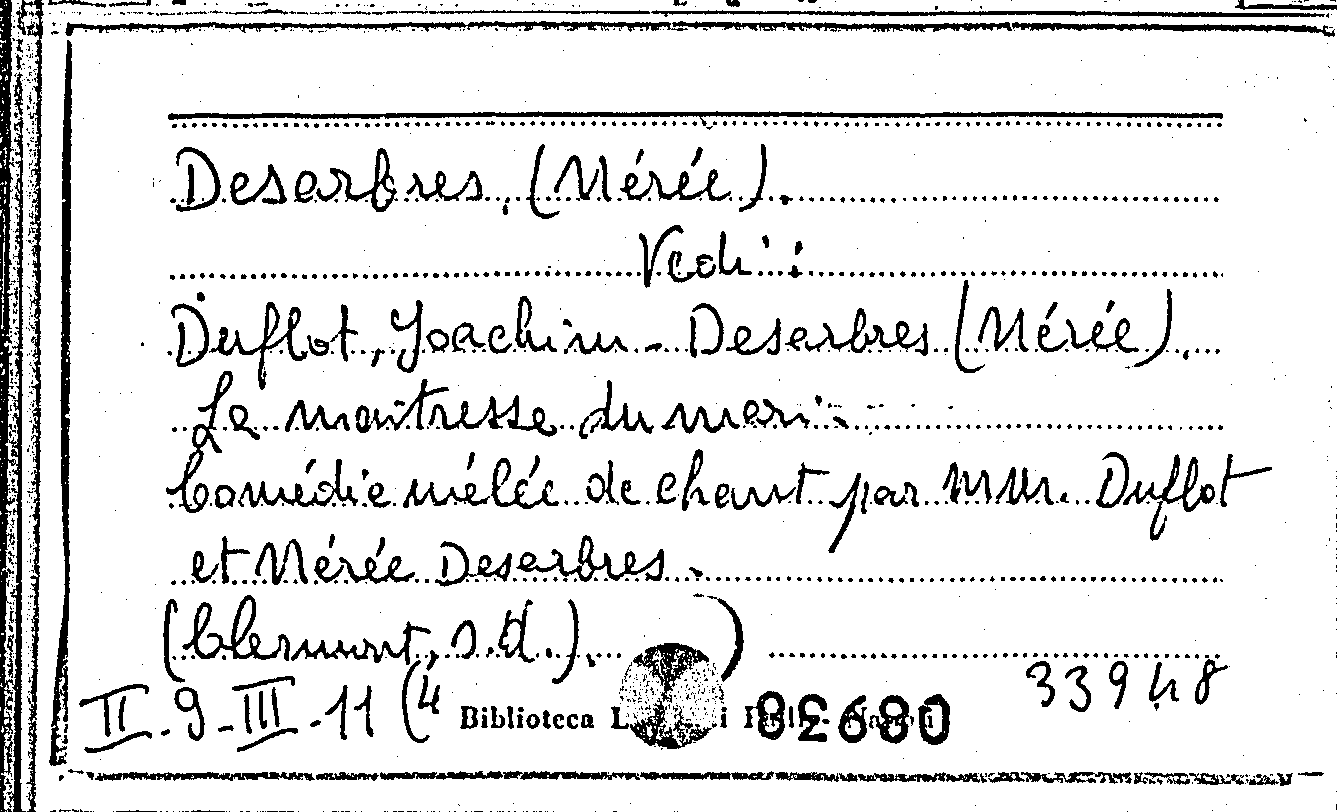 Deserbres, (Mérée).
Vedi:
Duflot, Joachim - Deserbres (Mérée).
La maitresse du mari.
Comédie mêlée de chant par MM. Duflot
et Mérée Deserbres.
(Clermont, s.d.).
II-9-III-11 (4
33948
Biblioteca